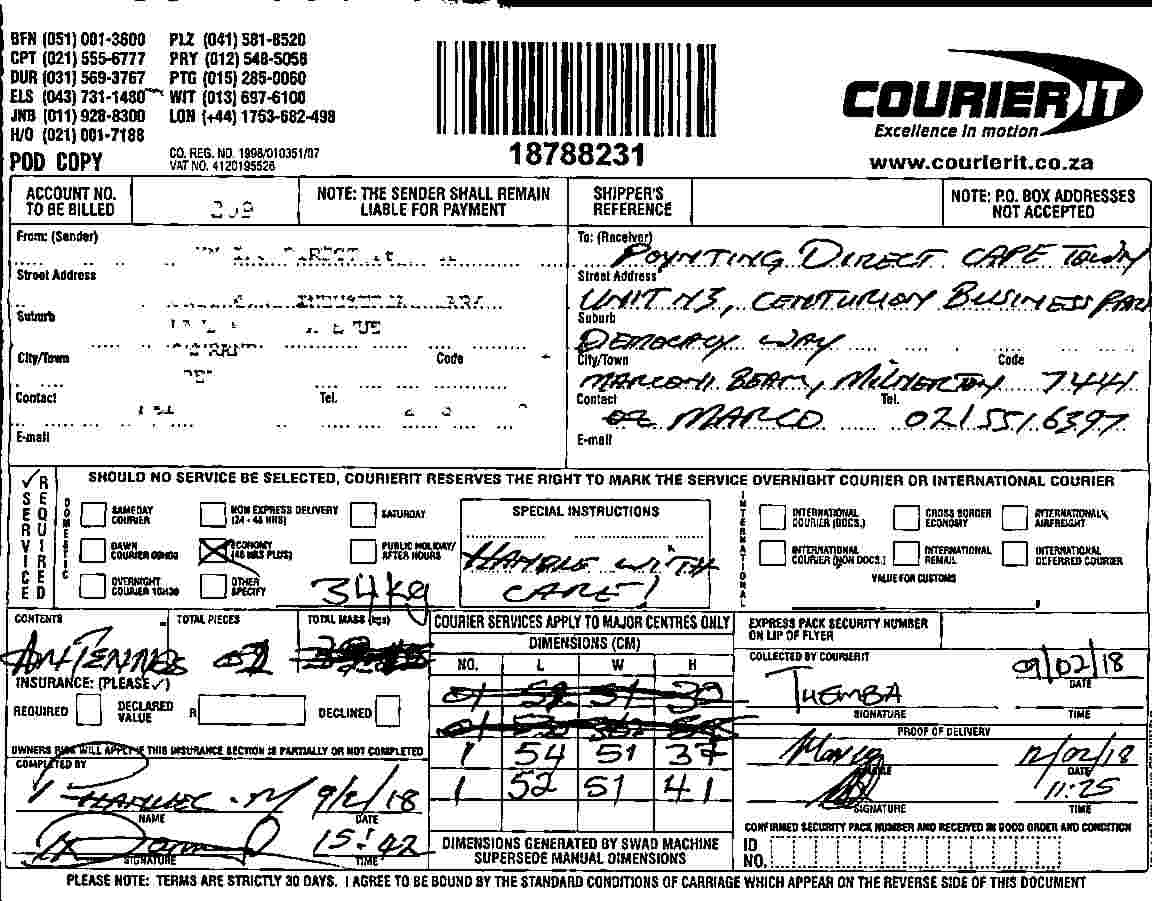 BFN (051) 001-3600 PLZ (041) 581-8520
CPT (021) 555-6777 PRY (012) 548-5058
DUR (031) 569-3767 PTG (015) 285-0060
ELS (043) 731-1480 WIT (013) 697-6100
JNB (011) 928-8300 LON (+44) 1753-682-498
H/O (021) 001-7188
POD COPY
CO. REG. NO. 1998/010351/07
VAT NO. 4120195526
18788231
COURIER IT
Excellence in motion
www.courierit.co.za
ACCOUNT NO. TO BE BILLED
NOTE: THE SENDER SHALL REMAIN LIABLE FOR PAYMENT
SHIPPER'S REFERENCE
NOTE: P.O. BOX ADDRESSES NOT ACCEPTED
From: (Sender)
Street Address
Suburb
City/Town Code
Contact Tel.
E-mail
To: (Receiver)
POYNTING DIRECT CAPE TOWN
Street Address
UNIT N3, CENTURION BUSINESS PARK
Suburb
DEMOCRACY WAY
City/Town Code
MARCONI BEAM, MILNERTON 7441
Contact Tel.
MARCO 021 551 6397
E-mail
SERVICE REQUIRED
SHOULD NO SERVICE BE SELECTED, COURIERIT RESERVES THE RIGHT TO MARK THE SERVICE OVERNIGHT COURIER OR INTERNATIONAL COURIER
DOMESTIC
SAMEDAY COURIER
NON EXPRESS DELIVERY (24 - 48 HRS)
SATURDAY
DAWN COURIER 09H00
ECONOMY (48 HRS PLUS)
PUBLIC HOLIDAY/ AFTER HOURS
OVERNIGHT COURIER 10H30
OTHER SPECIFY
34kg
SPECIAL INSTRUCTIONS
HANDLE WITH
CARE!
INTERNATIONAL
INTERNATIONAL COURIER (DOCS.)
CROSS BORDER ECONOMY
INTERNATIONAL AIRFREIGHT
INTERNATIONAL COURIER (NON DOCS.)
INTERNATIONAL REMAIL
INTERNATIONAL DEFERRED COURIER
VALUE FOR CUSTOMS
CONTENTS TOTAL PIECES TOTAL MASS (kgs)
ANTENNAS
INSURANCE: (PLEASE ✓)
REQUIRED DECLARED VALUE R DECLINED
OWNERS RISK WILL APPLY IF THIS INSURANCE SECTION IS PARTIALLY OR NOT COMPLETED
COMPLETED BY
9/2/18
NAME DATE
15:42
SIGNATURE TIME
COURIER SERVICES APPLY TO MAJOR CENTRES ONLY
DIMENSIONS (CM)
NO. L W H
1 54 51 37
1 52 51 41
DIMENSIONS GENERATED BY SWAD MACHINE
SUPERSEDE MANUAL DIMENSIONS
EXPRESS PACK SECURITY NUMBER
ON LIP OF FLYER
COLLECTED BY COURIERIT
THEMBA 09/02/18
DATE
SIGNATURE TIME
PROOF OF DELIVERY
12/02/18
NAME DATE
11:25
SIGNATURE TIME
CONFIRMED SECURITY PACK NUMBER AND RECEIVED IN GOOD ORDER AND CONDITION
ID NO.
PLEASE NOTE: TERMS ARE STRICTLY 30 DAYS. I AGREE TO BE BOUND BY THE STANDARD CONDITIONS OF CARRIAGE WHICH APPEAR ON THE REVERSE SIDE OF THIS DOCUMENT